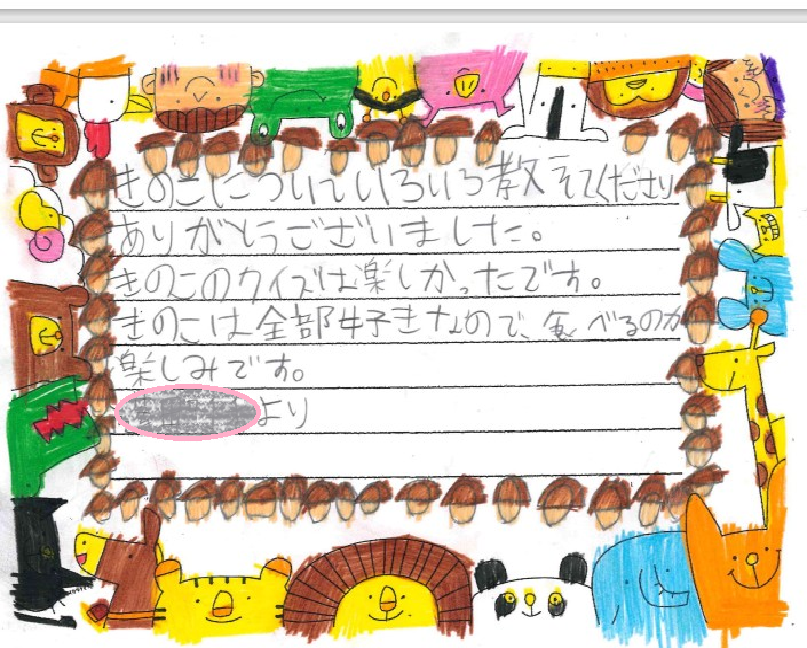 きのこについていろいろ教えてくださり
ありがとうございました。
きのこのクイズは楽しかったです。
きのこは全部好きなので、食べるのが
楽しみです。
より